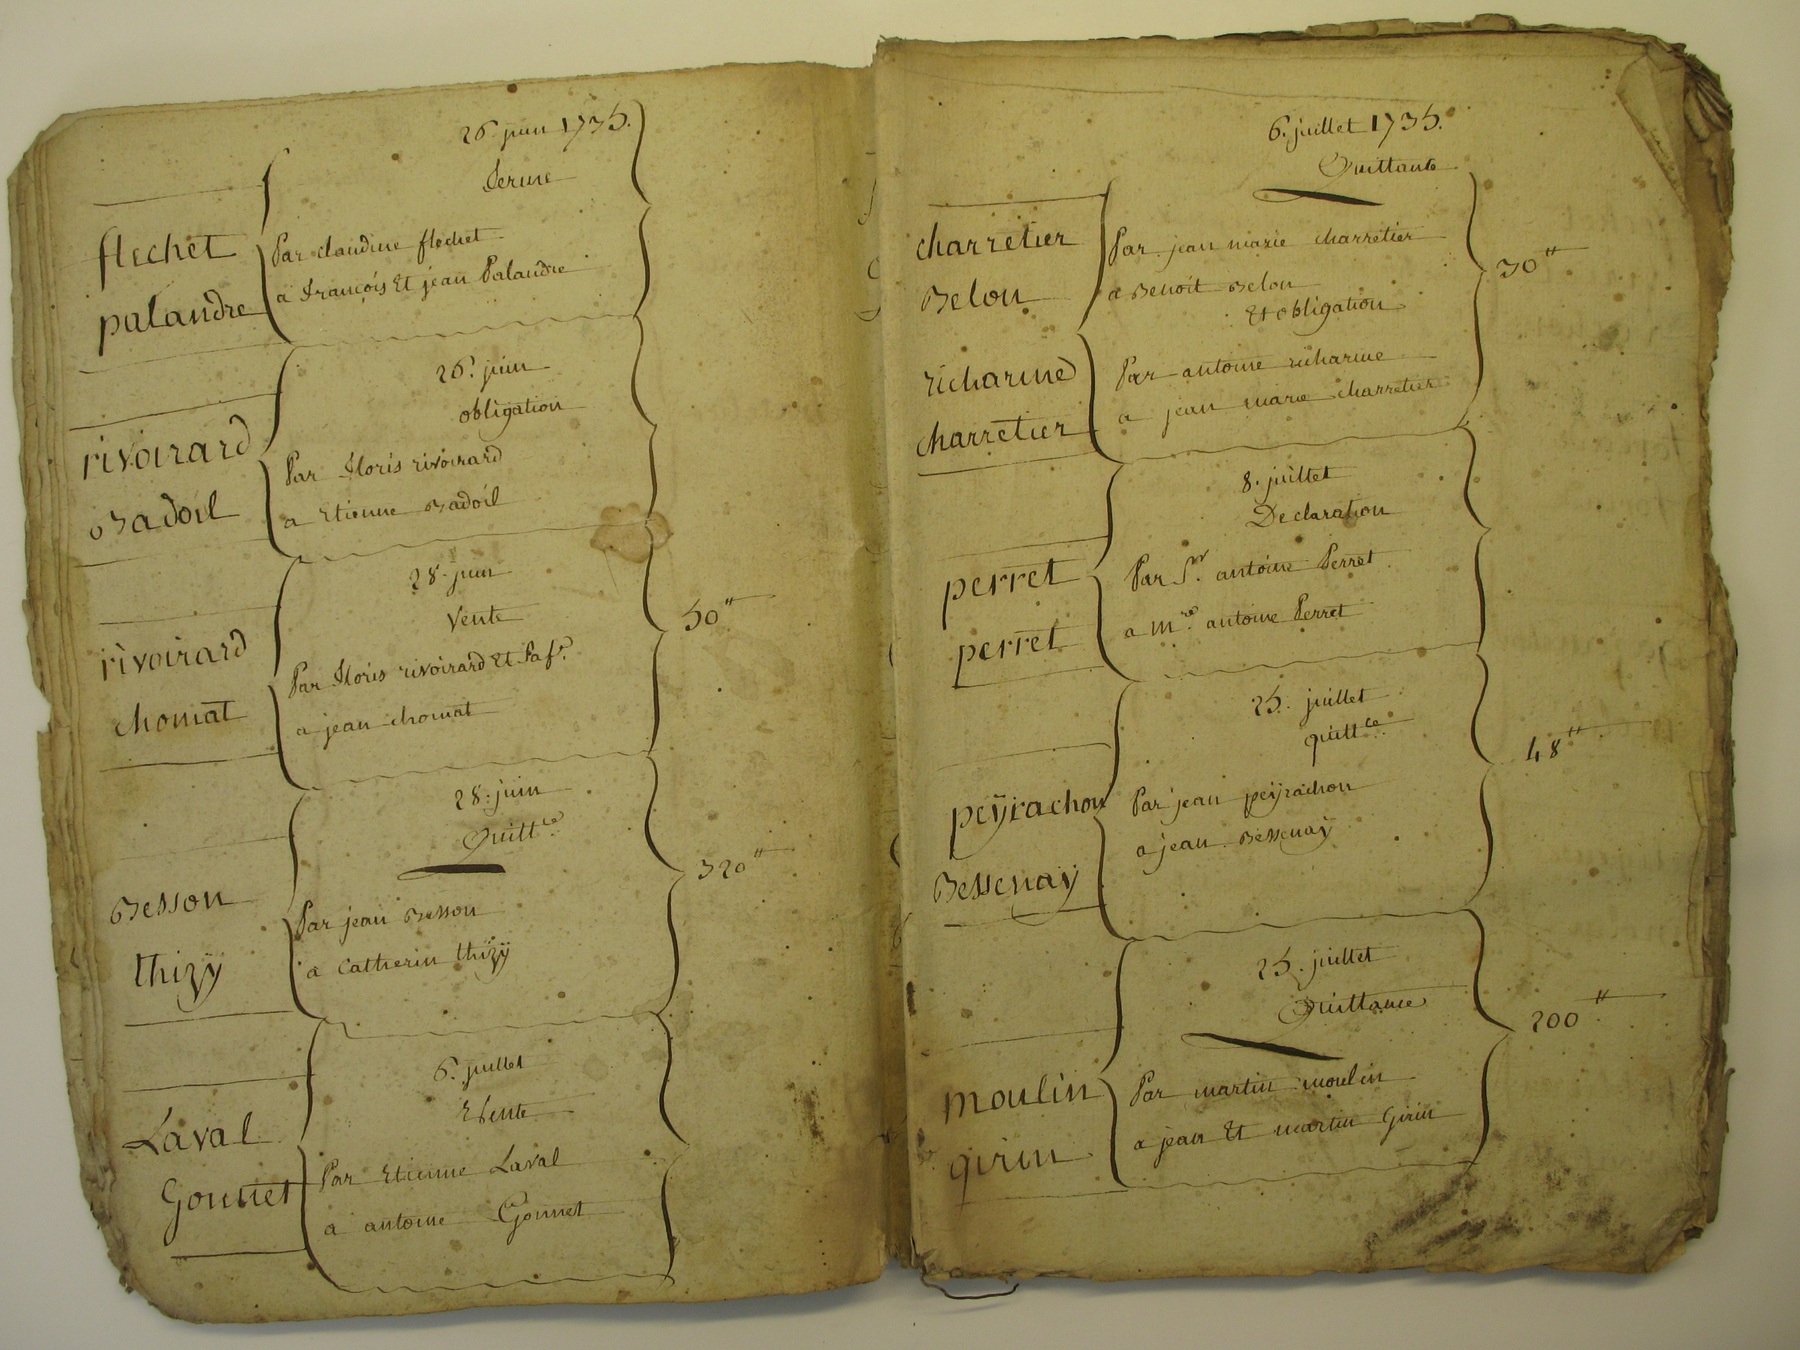 26. juin 1735.
ferme
flechet
Par claudine flechet
palandre
a François Et jean Palandre
26. juin
obligation
rivoirard
Par floris rivoirard
Badoil
a Etienne Badoil
28. juin
Vente
rivoirard
Par floris rivoirard Et Saf.e
chomat
a jean chomat
50"
28. juin
Quitt.ce
320"
Besson
Par jean Besson
thizÿ
a Catherin thizÿ
6. juillet
Vente
Laval
Par Etienne Laval
Gonnet
a antoine Gonnet
6. juillet 1735.
Quittance
charretier
Par jean marie charretier
30"
Belon
a Benoit Belon
Et obligation
richarme
Par antoine richarme
charretier
a jean marie charretier
8. juillet
Declaration
perret
Par Sr. antoine Perret
perret
a m.re antoine Perret
25. juillet
quitt.ce
48"
peÿrachon
Par jean peÿrachon
Bessenaÿ
a jean Bessenaÿ
25. juillet
Quittance
200"
moulin
Par martin moulin
girin
a jean Et martin Girin